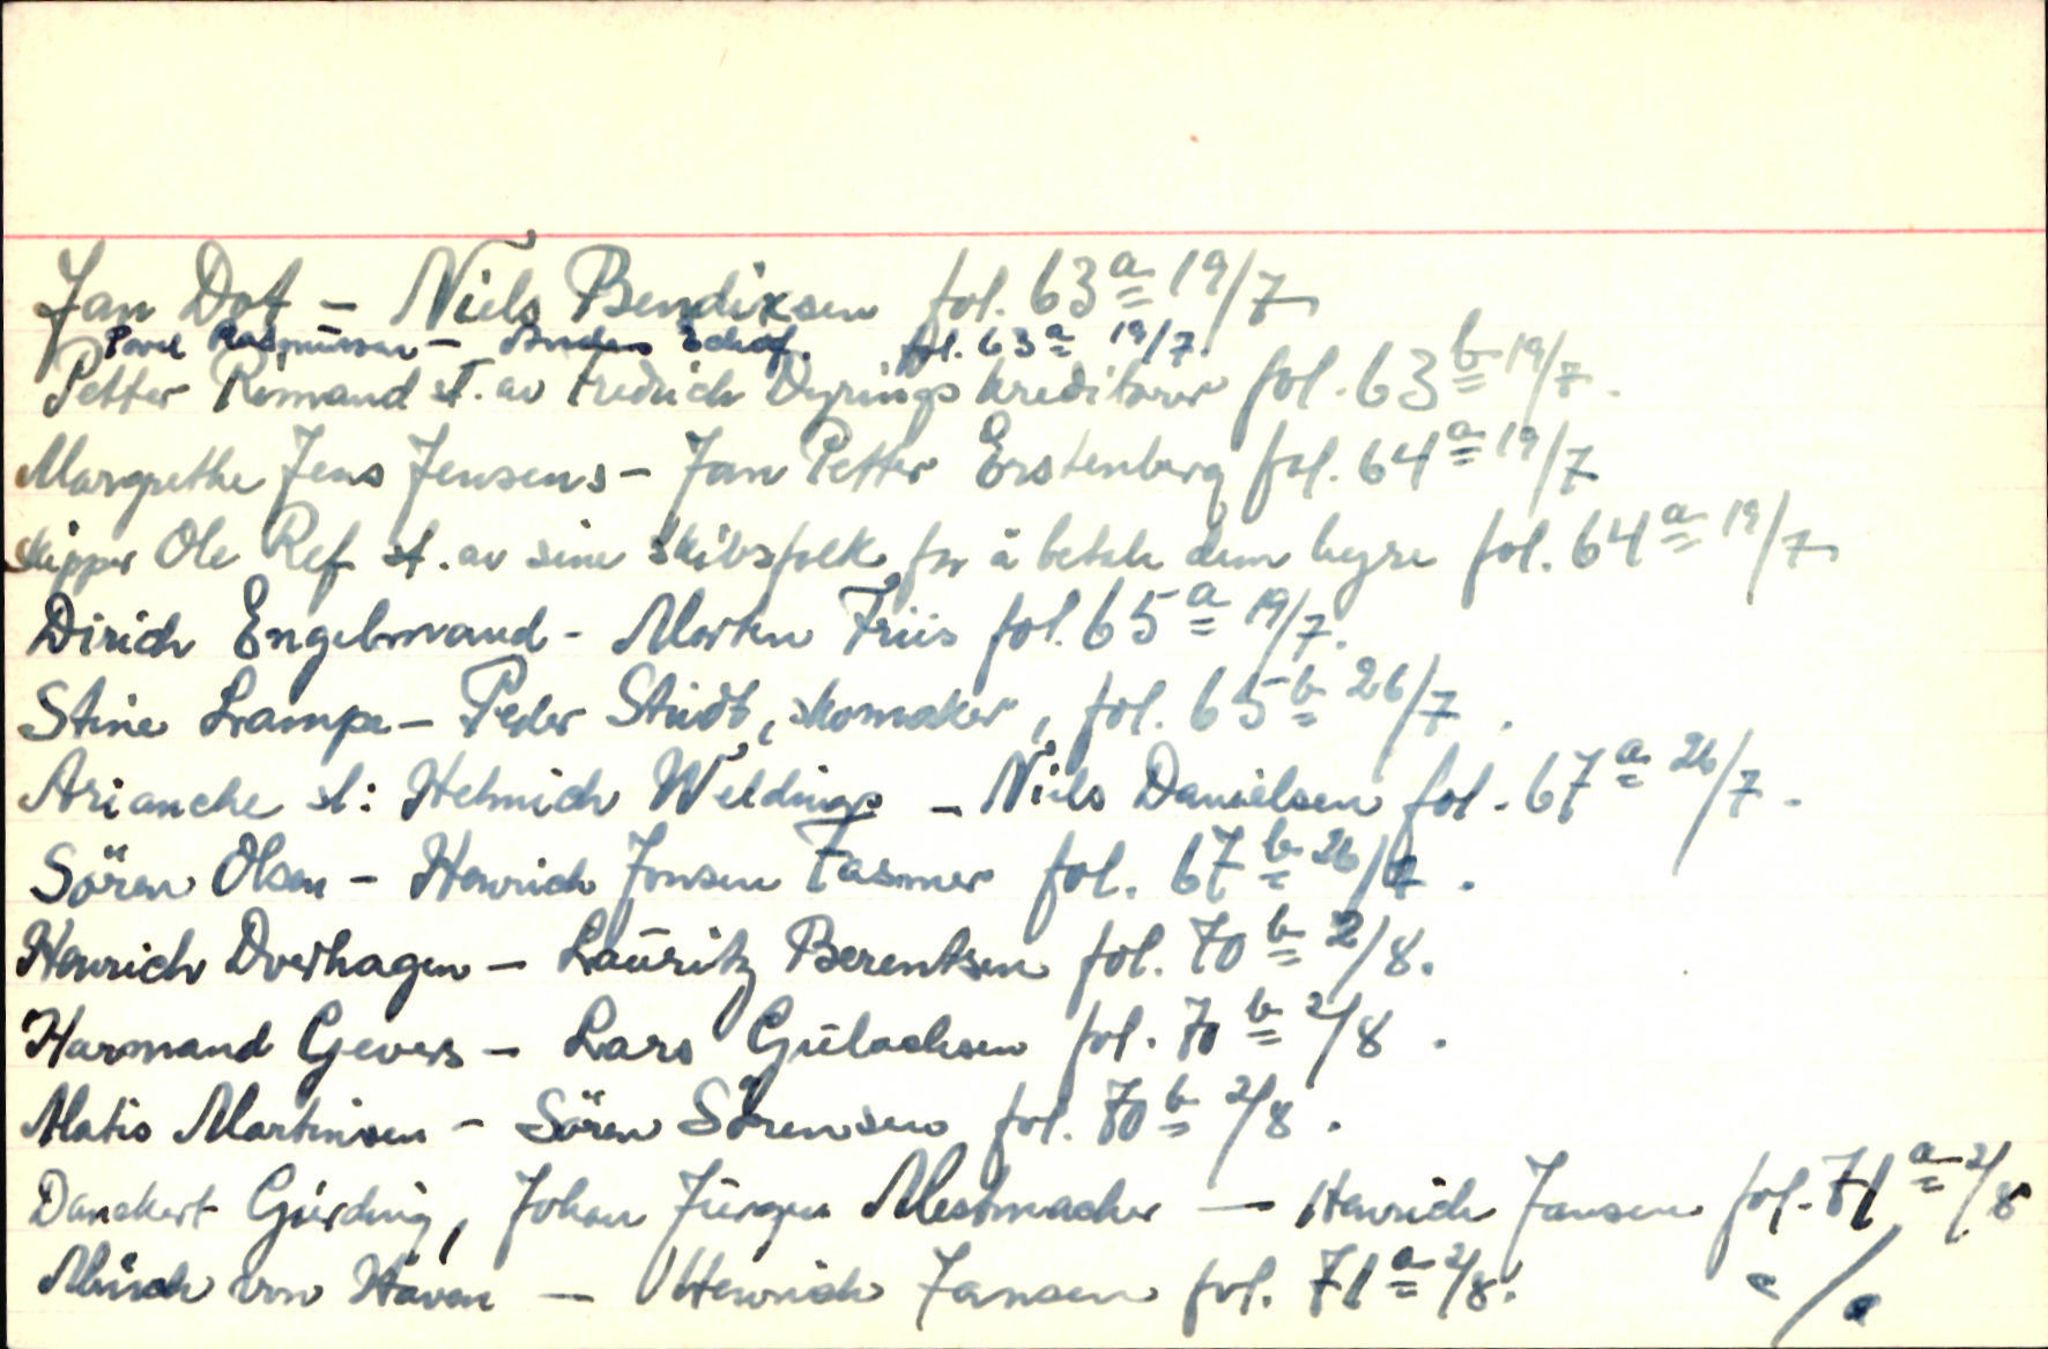 Jan Dot – Niels Bendixsen fol. 63ª 19/7
Povel Rasmussen – Anders fol. 63ª 19/7.
Petter Romand st. av Fredrich Dyrings kreditorer fol. 63b 19/7.
Margrethe Jens Jensens – Jan Petter Erstenberg fol. 64a 19/7
skipper Ole Ref st. av sine skibsfolk for å betale dem hyre fol. 64a 19/7
Dirich Engelmand - Morten Friis fol. 65a 19/7.
Stine Lampe – Peder Stüdt, skomaker, fol. 65b 26/7.
Arianche sl: Helmich Weldings – Niels Danielsen fol. 67a 26/7.
Sören Olsen – Henrich Jonsen Fasmer fol. 67b 26/7.
Henrich Dverhagen – Lauritz Berentsen fol. 70b 2/8.
Harmand Gevers – Lars Gulachsen fol. 70b 2/8.
Matis Martinsen – Sören Sörensen fol. 70b 2/8.
Danckert Gürding, Johan Jürgen Mestmacher — Henrich Jansen fol. 71a 2/8
von Haven — Henrich Jansen fol. 71a 2/8.